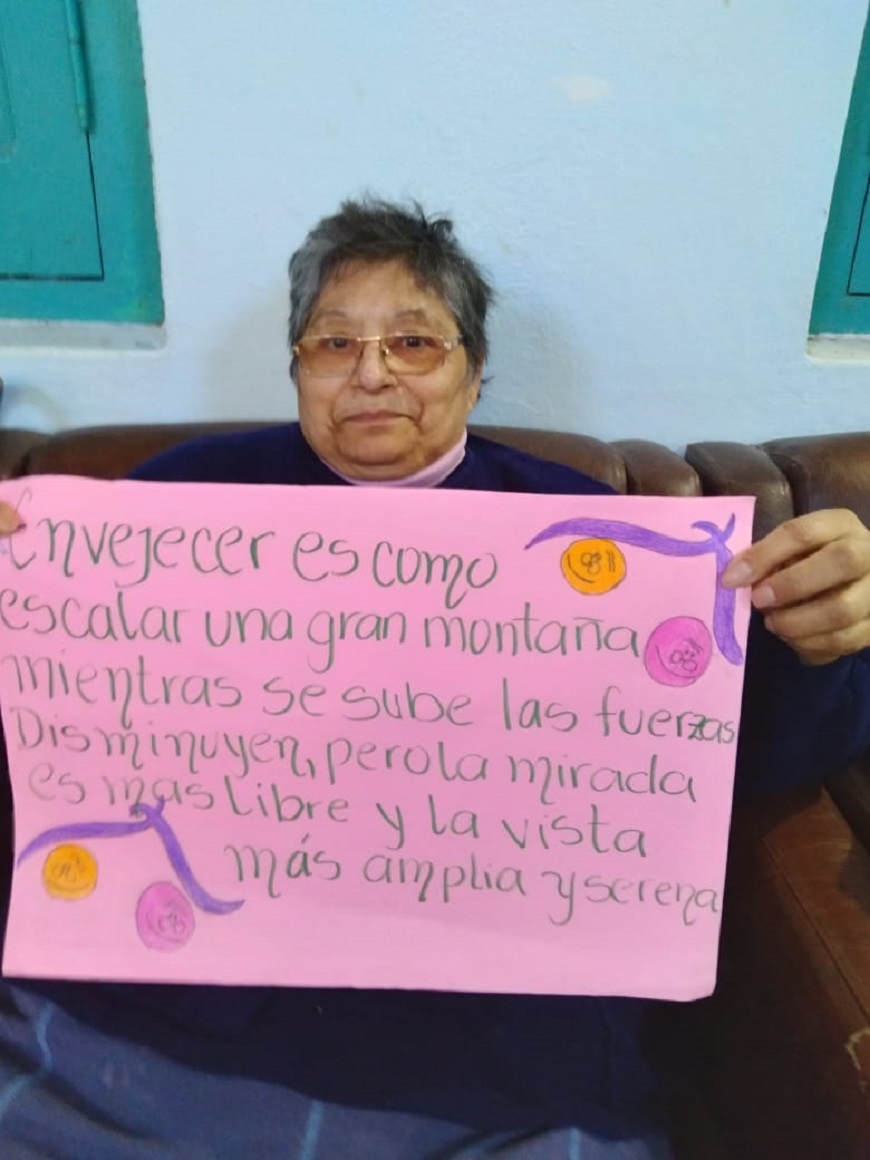 Envejecer es como
escalar una gran montaña
mientras se sube las fuerzas
Disminuyen, pero la mirada
es mas Libre y la vista
más amplia y serena